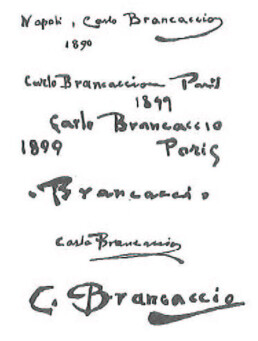 Napoli, Carlo Brancaccio
1890
Carlo Brancaccio Paris
1899
Carlo Brancaccio
1899 Paris
Brancacci
Carlo Brancaccio
C. Brancaccio